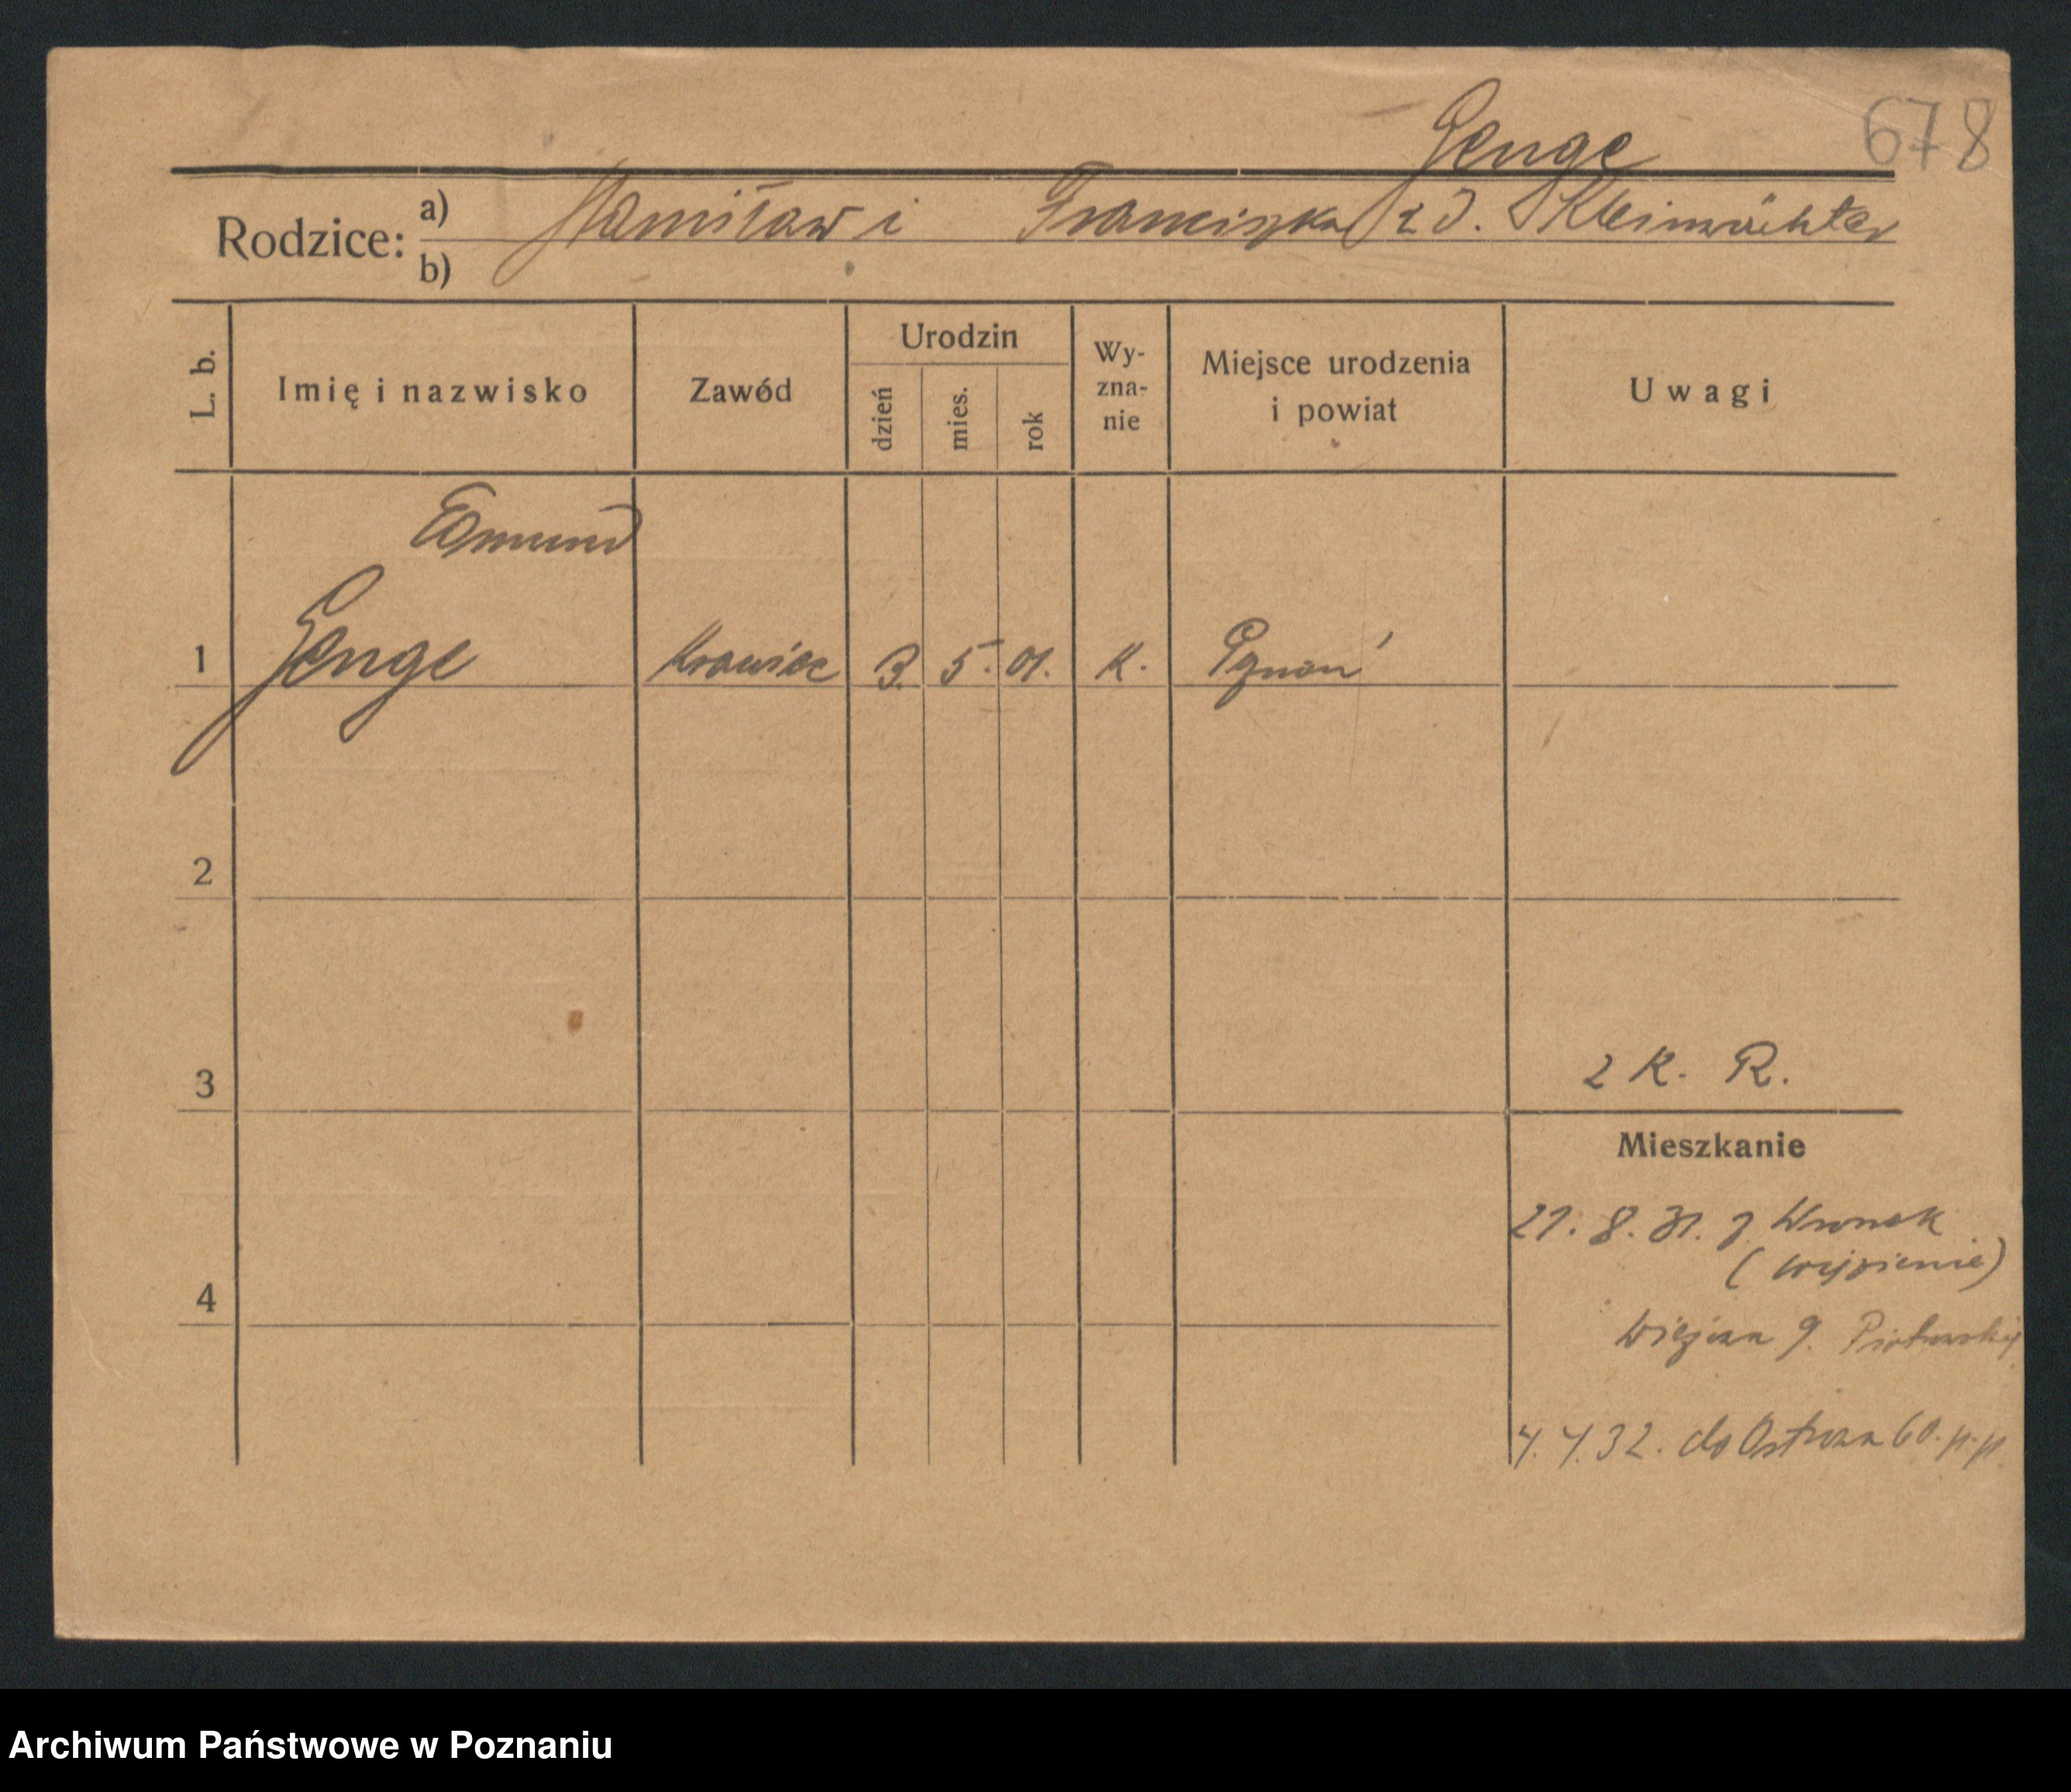 678
Genge
Rodzice: a) Stanisław i Franciszka z d. Kleinwächter
b)
L. b. Imię i nazwisko Zawód Urodzin dzień mies. rok Wy-zna-nie Miejsce urodzenia i powiat Uwagi
Edmund
1 Genge Krawiec 3. 5. 01. K. Poznań
2
3 2 K. R.
Mieszkanie
21. 8. 31. z Wronek
(więzienie)
4
Wiejska 9. Piotrowski
4. 4. 32. do Ostrowa 60. p. p.
Archiwum Państwowe w Poznaniu